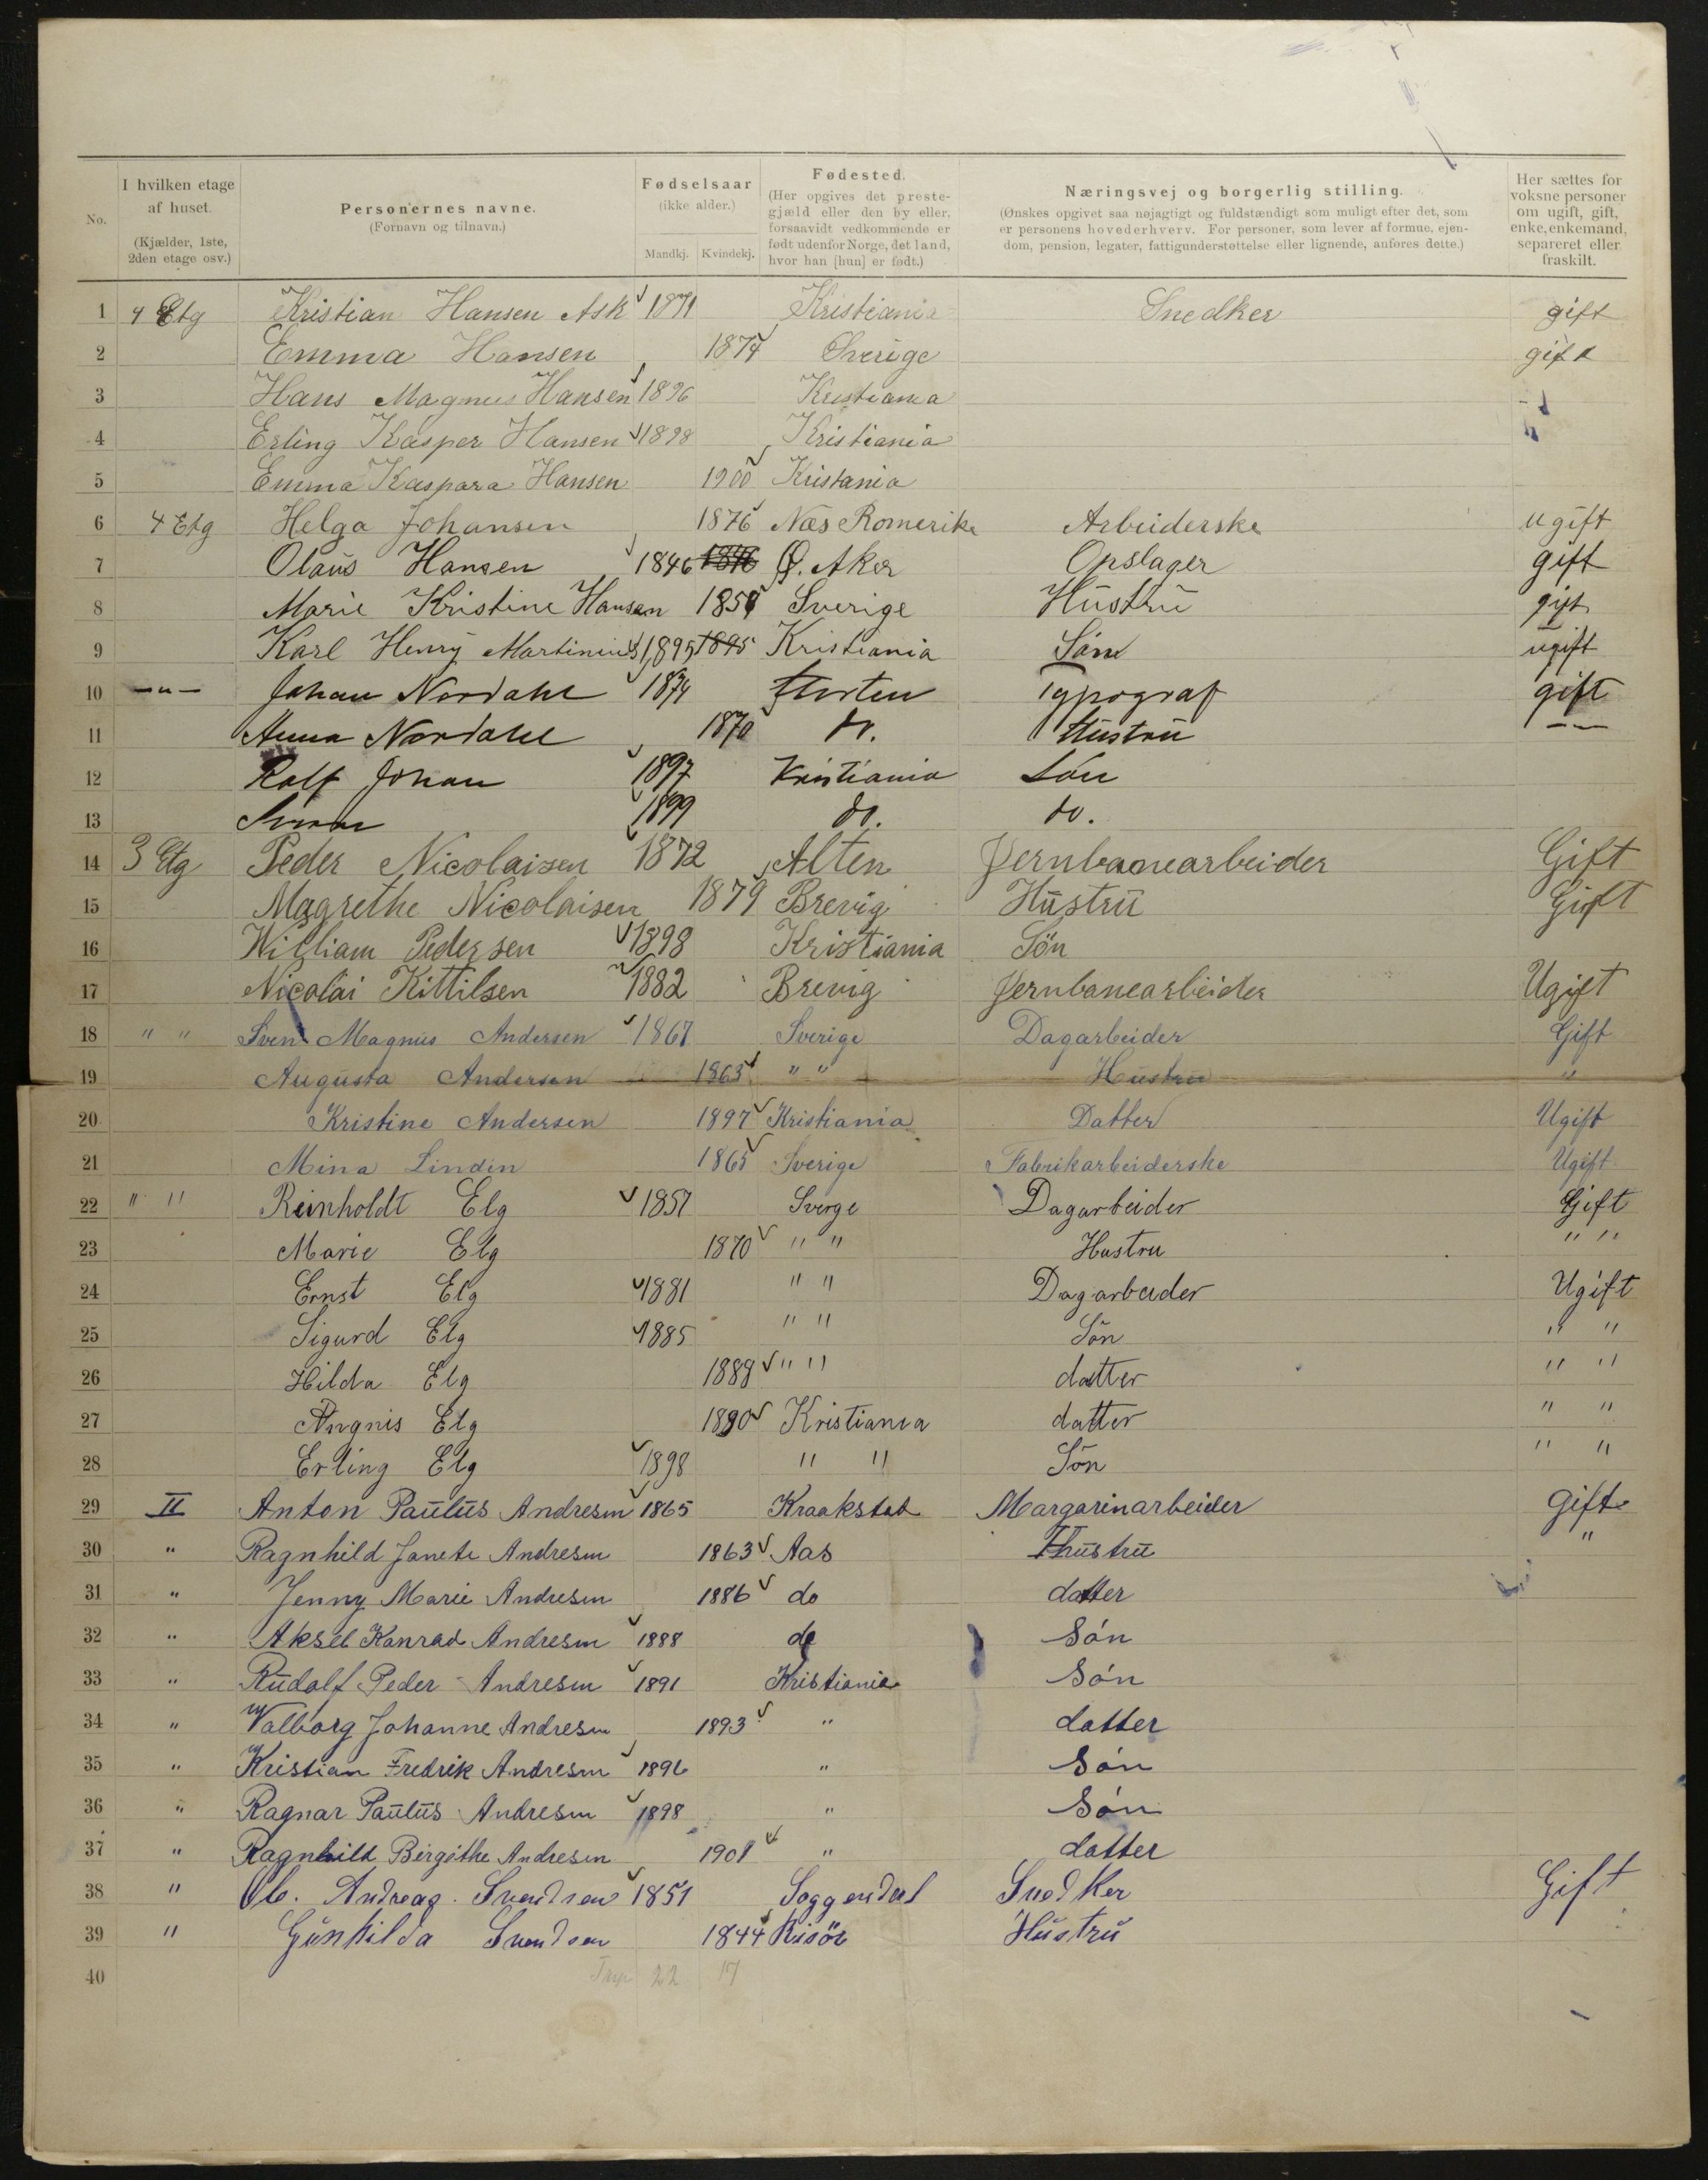 No.
I hvilken etage af huset. (Kjælder, 1ste, 2den etage osv.)
Personernes navne. (Fornavn og tilnavn.)
Fødselsaar (ikke alder.) Mandkj. Kvindekj.
Fødested. (Her opgives det prestegjæld eller den by eller, forsaavidt vedkommende er født udenfor Norge, det land, hvor han [hun] er født.)
Næringsvej og borgerlig stilling. (Ønskes opgivet saa nøjagtigt og fuldstændigt som muligt efter det, som er personens hovederhverv. For personer, som lever af formue, ejendom, pension, legater, fattigunderstøttelse eller lignende, anføres dette.)
Her sættes for voksne personer om ugift, gift, enke, enkemand, separeret eller fraskilt.
1 4 Etg Kristian Hansen Ask 1871 Kristiania Snedker gift
2 Emma Hansen 1874 Sverige gift
3 Hans Magnus Hansen 1896 Kristiania
4 Erling Kasper Hansen 1898 Kristiania
5 Emma Kaspara Hansen 1900 Kristania
6 4 Etg Helga Johansen 1876 Næs Romerike Arbeiderske ugift
7 Olaus Hansen 1846 1846 Ø. Aker Opslager gift
8 Marie Kristine Hansen Sverige Hustru gift
9 Karl Henry Martinius 1895 1895 Kristiania Søn ugift
10 —„— Johan Nordahl 1874 Horten Typograf gift
11 Anna Nordahl 1870 do. Hustru —„—
12 Rolf Johan 1897 Kristiania Søn
13 1899 do. do.
14 3 Etg Peder Nicolaisen 1872 Alten Jernbanearbeider Gift
15 Magrethe Nicolaisen 1879 Brevig Hustru Gift
16 William Pedersen 1898 Kristiania Søn
17 Nicolai Kittilsen 1882 Brevig Jernbanearbeider Ugift
18 " " Sven Magnus Andersen 1867 Sverige Dagarbeider Gift
19 Augusta Andersen 1863 " " Hustru "
20 Kristine Andersen 1897 Kristiania Datter Ugift
21 Mina Lindin 1865 Sverige Fabrikarbeiderske Ugift
22 " " Reinholdt Elg 1857 Sverge Dagarbeider Gift
23 Marie Elg 1870 " " Hustru " "
24 Ernst Elg 1881 " " Dagarbeider Ugift
25 Sigurd Elg 1885 " " Søn " "
26 Hilda Elg 1888 " " datter " "
27 Angnis Elg 1890 Kristiania datter " "
28 Erling Elg 1898 " " Søn " "
29 II Anton Paulus Andresen 1865 Kraakstad Margarinarbeider gift
30 " Ragnhild Janete Andresen 1863 Aas Hustru "
31 " Jenny Marie Andresen 1886 do datter
32 " Aksel Konrad Andresen 1888 do Søn
33 " Rudolf Peder Andresen 1891 Kristiania Søn
34 " Valborg Johanne Andresen 1893 " datter
35 " Kristian Fredrik Andresen 1896 " Søn
36 " Ragnar Paulus Andresen 1898 " Søn
37 " Ragnhild Birgithe Andresen 1901 " datter
38 " Ole. Andreas. Svendsen 1851 Soggendal Snedker Gift
39 " Gunhilda Svendsen 1844 Risör Hustru
40 22 17